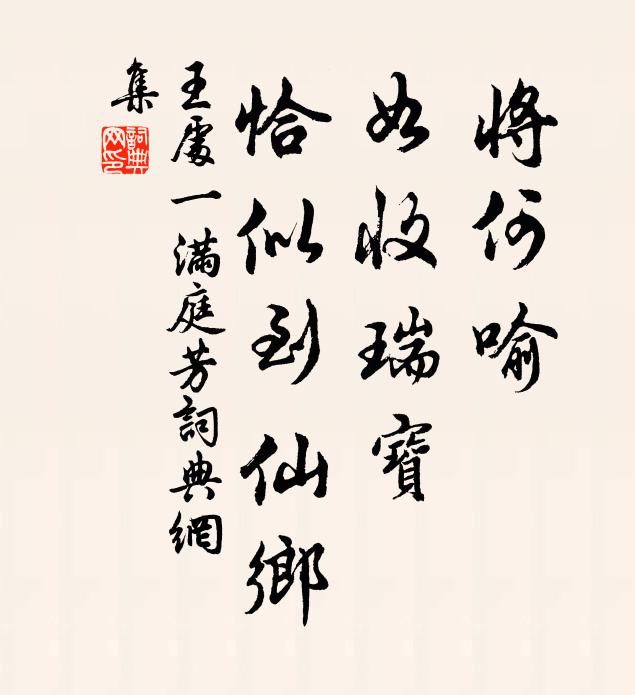 將何喻
如收瑞寶
恰似到仙鄉
王處一滿庭芳詞典網
集
詞典網印